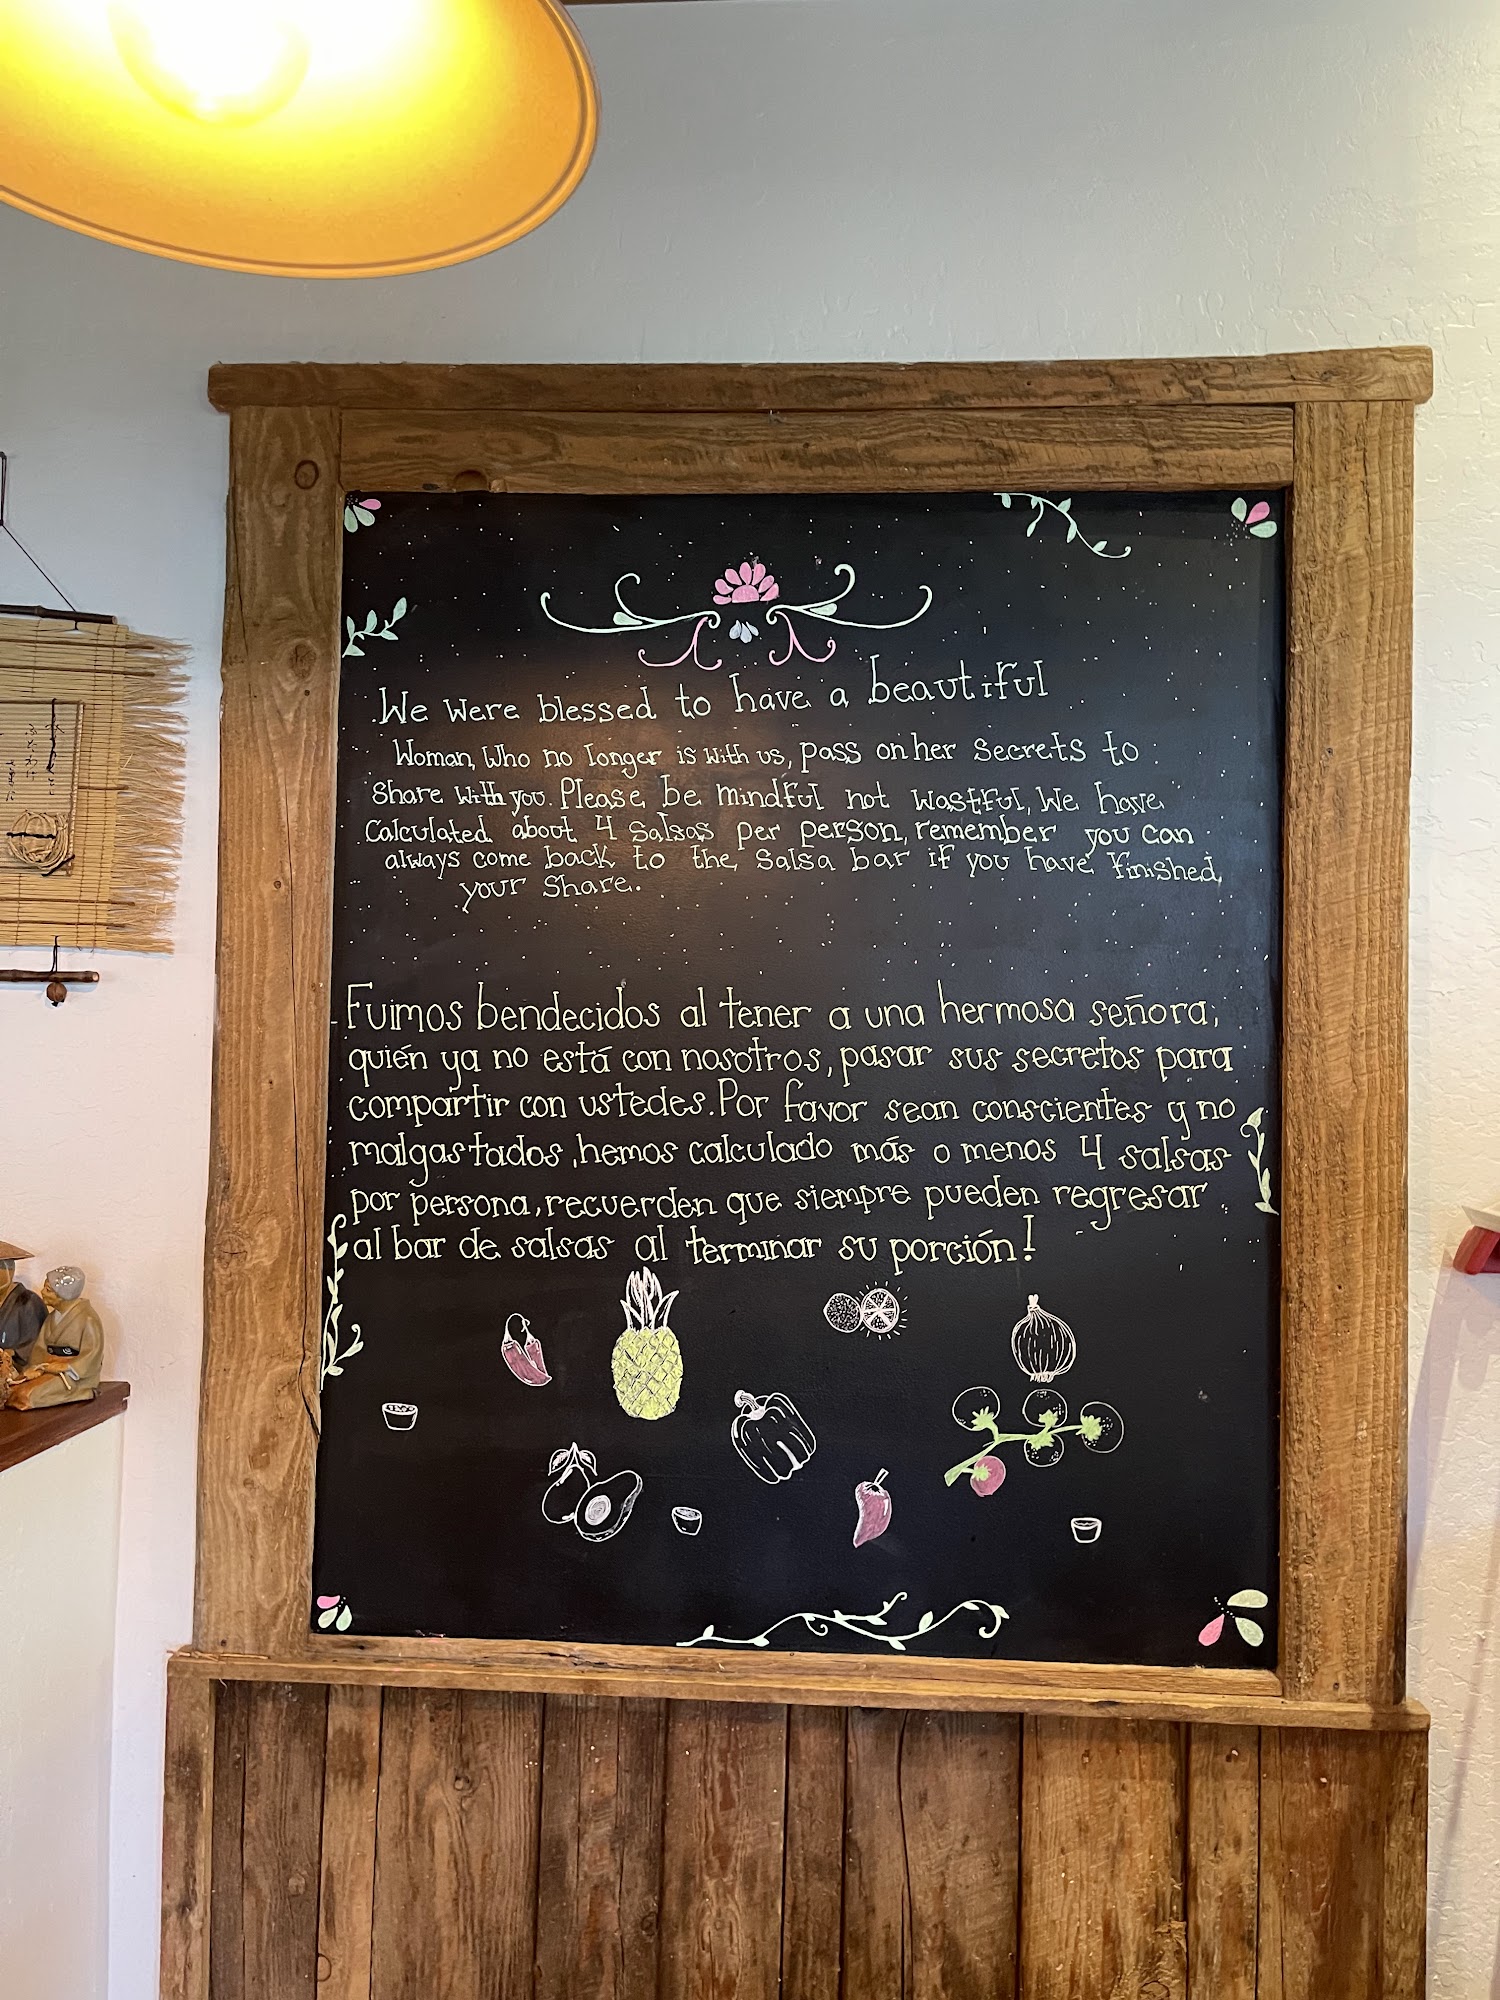 We were blessed to have a beautiful
Woman, Who no longer is with us, pass on her secrets to
share with you. Please be mindful not wastful, We have
calculated about 4 salsas per person, remember you can
always come back to the salsa bar if you have finished
your share.
Fuimos bendecidos al tener a una hermosa señora,
quién ya no está con nosotros, pasar sus secretos para
compartir con ustedes. Por favor sean conscientes y no
malgastados, hemos calculado más o menos 4 salsas
por persona, recuerden que siempre pueden regresar
al bar de salsas al terminar su porción!